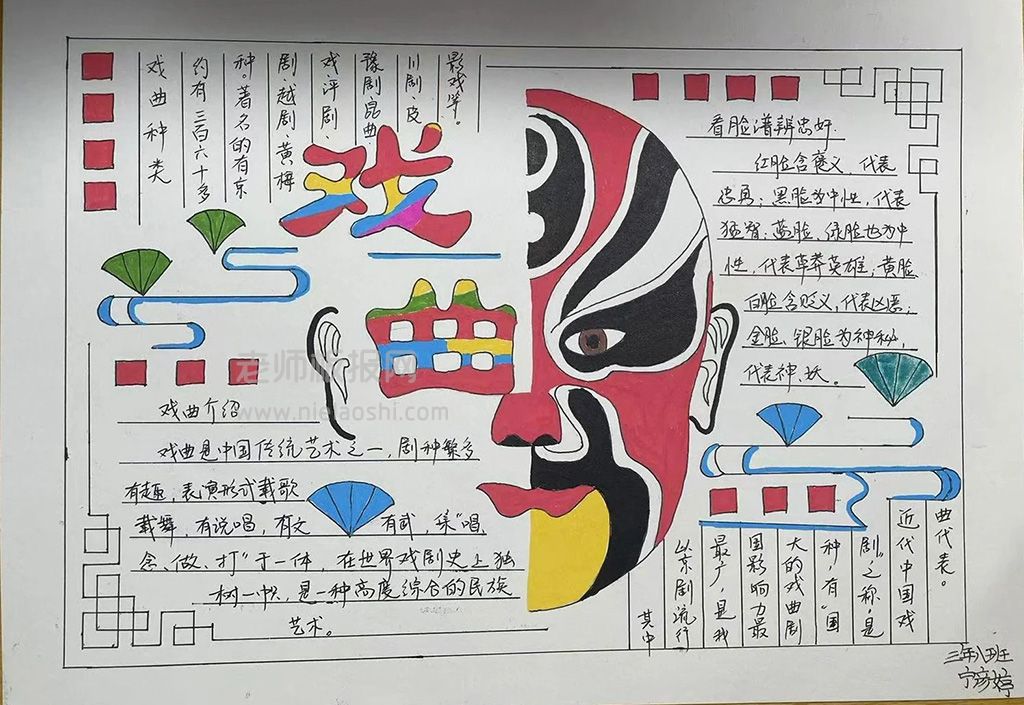 戏曲种类
约有三百六十多
种。著名的有京
剧、越剧、黄梅
戏、评剧
豫剧、昆曲
川剧、皮
影戏等。
戏曲
看脸谱辨忠奸
红脸含褒义，代表
忠勇；黑脸为中性，代表
猛智；蓝脸、绿脸也为中
性，代表草莽英雄；黄脸
白脸含贬义，代表凶恶；
金脸、银脸为神秘，
代表神、妖。
老师板报网
www.nielaoshi.com
戏曲介绍
戏曲是中国传统艺术之一，剧种繁多
有趣，表演形式载歌
载舞，有说唱，有文有武，集"唱、
念、做、打"于一体，在世界戏剧史上独
树一帜，是一种高度综合的民族
艺术。
其中
以京剧流行
最广，是我
国影响力最
大的戏曲剧
种，有"国
剧"之称，是
近代中国戏
曲代表。
三年八班
宁彦婷